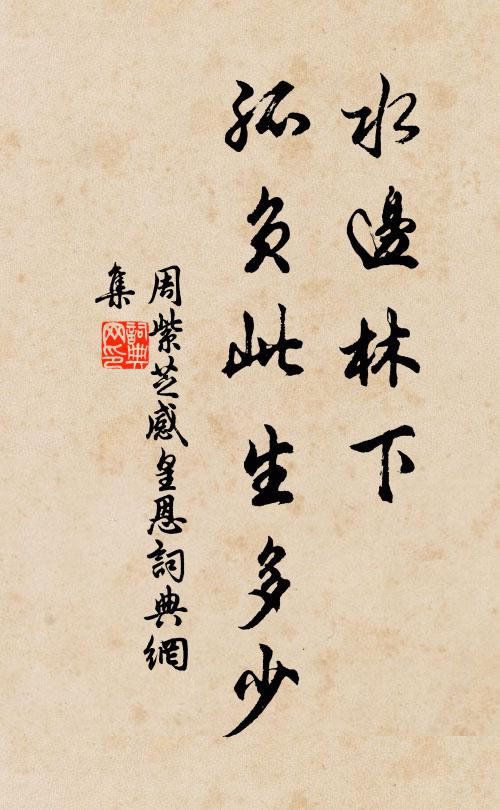 水邊林下
孤負此生多少
周紫芝感皇恩詞典網
集
詞典
网印